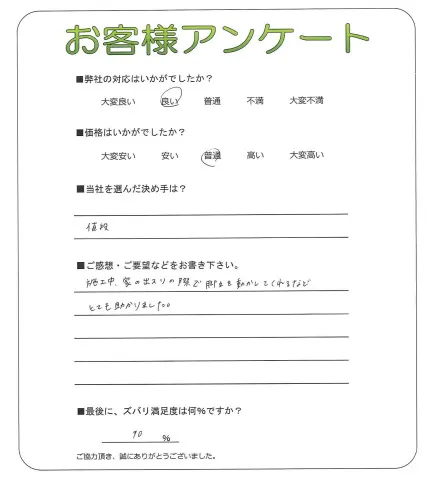 お客様アンケート
■弊社の対応はいかがでしたか?
大変良い 良い 普通 不満 大変不満
■価格はいかがでしたか?
大変安い 安い 普通 高い 大変高い
■当社を選んだ決め手は?
値段
■ご感想・ご要望などをお書き下さい。
施工中、家の出入りの際で脚立を動かしてくれるなど
とても助かりました。
■最後に、ズバリ満足度は何%ですか?
90 %
ご協力頂き、誠にありがとうございました。